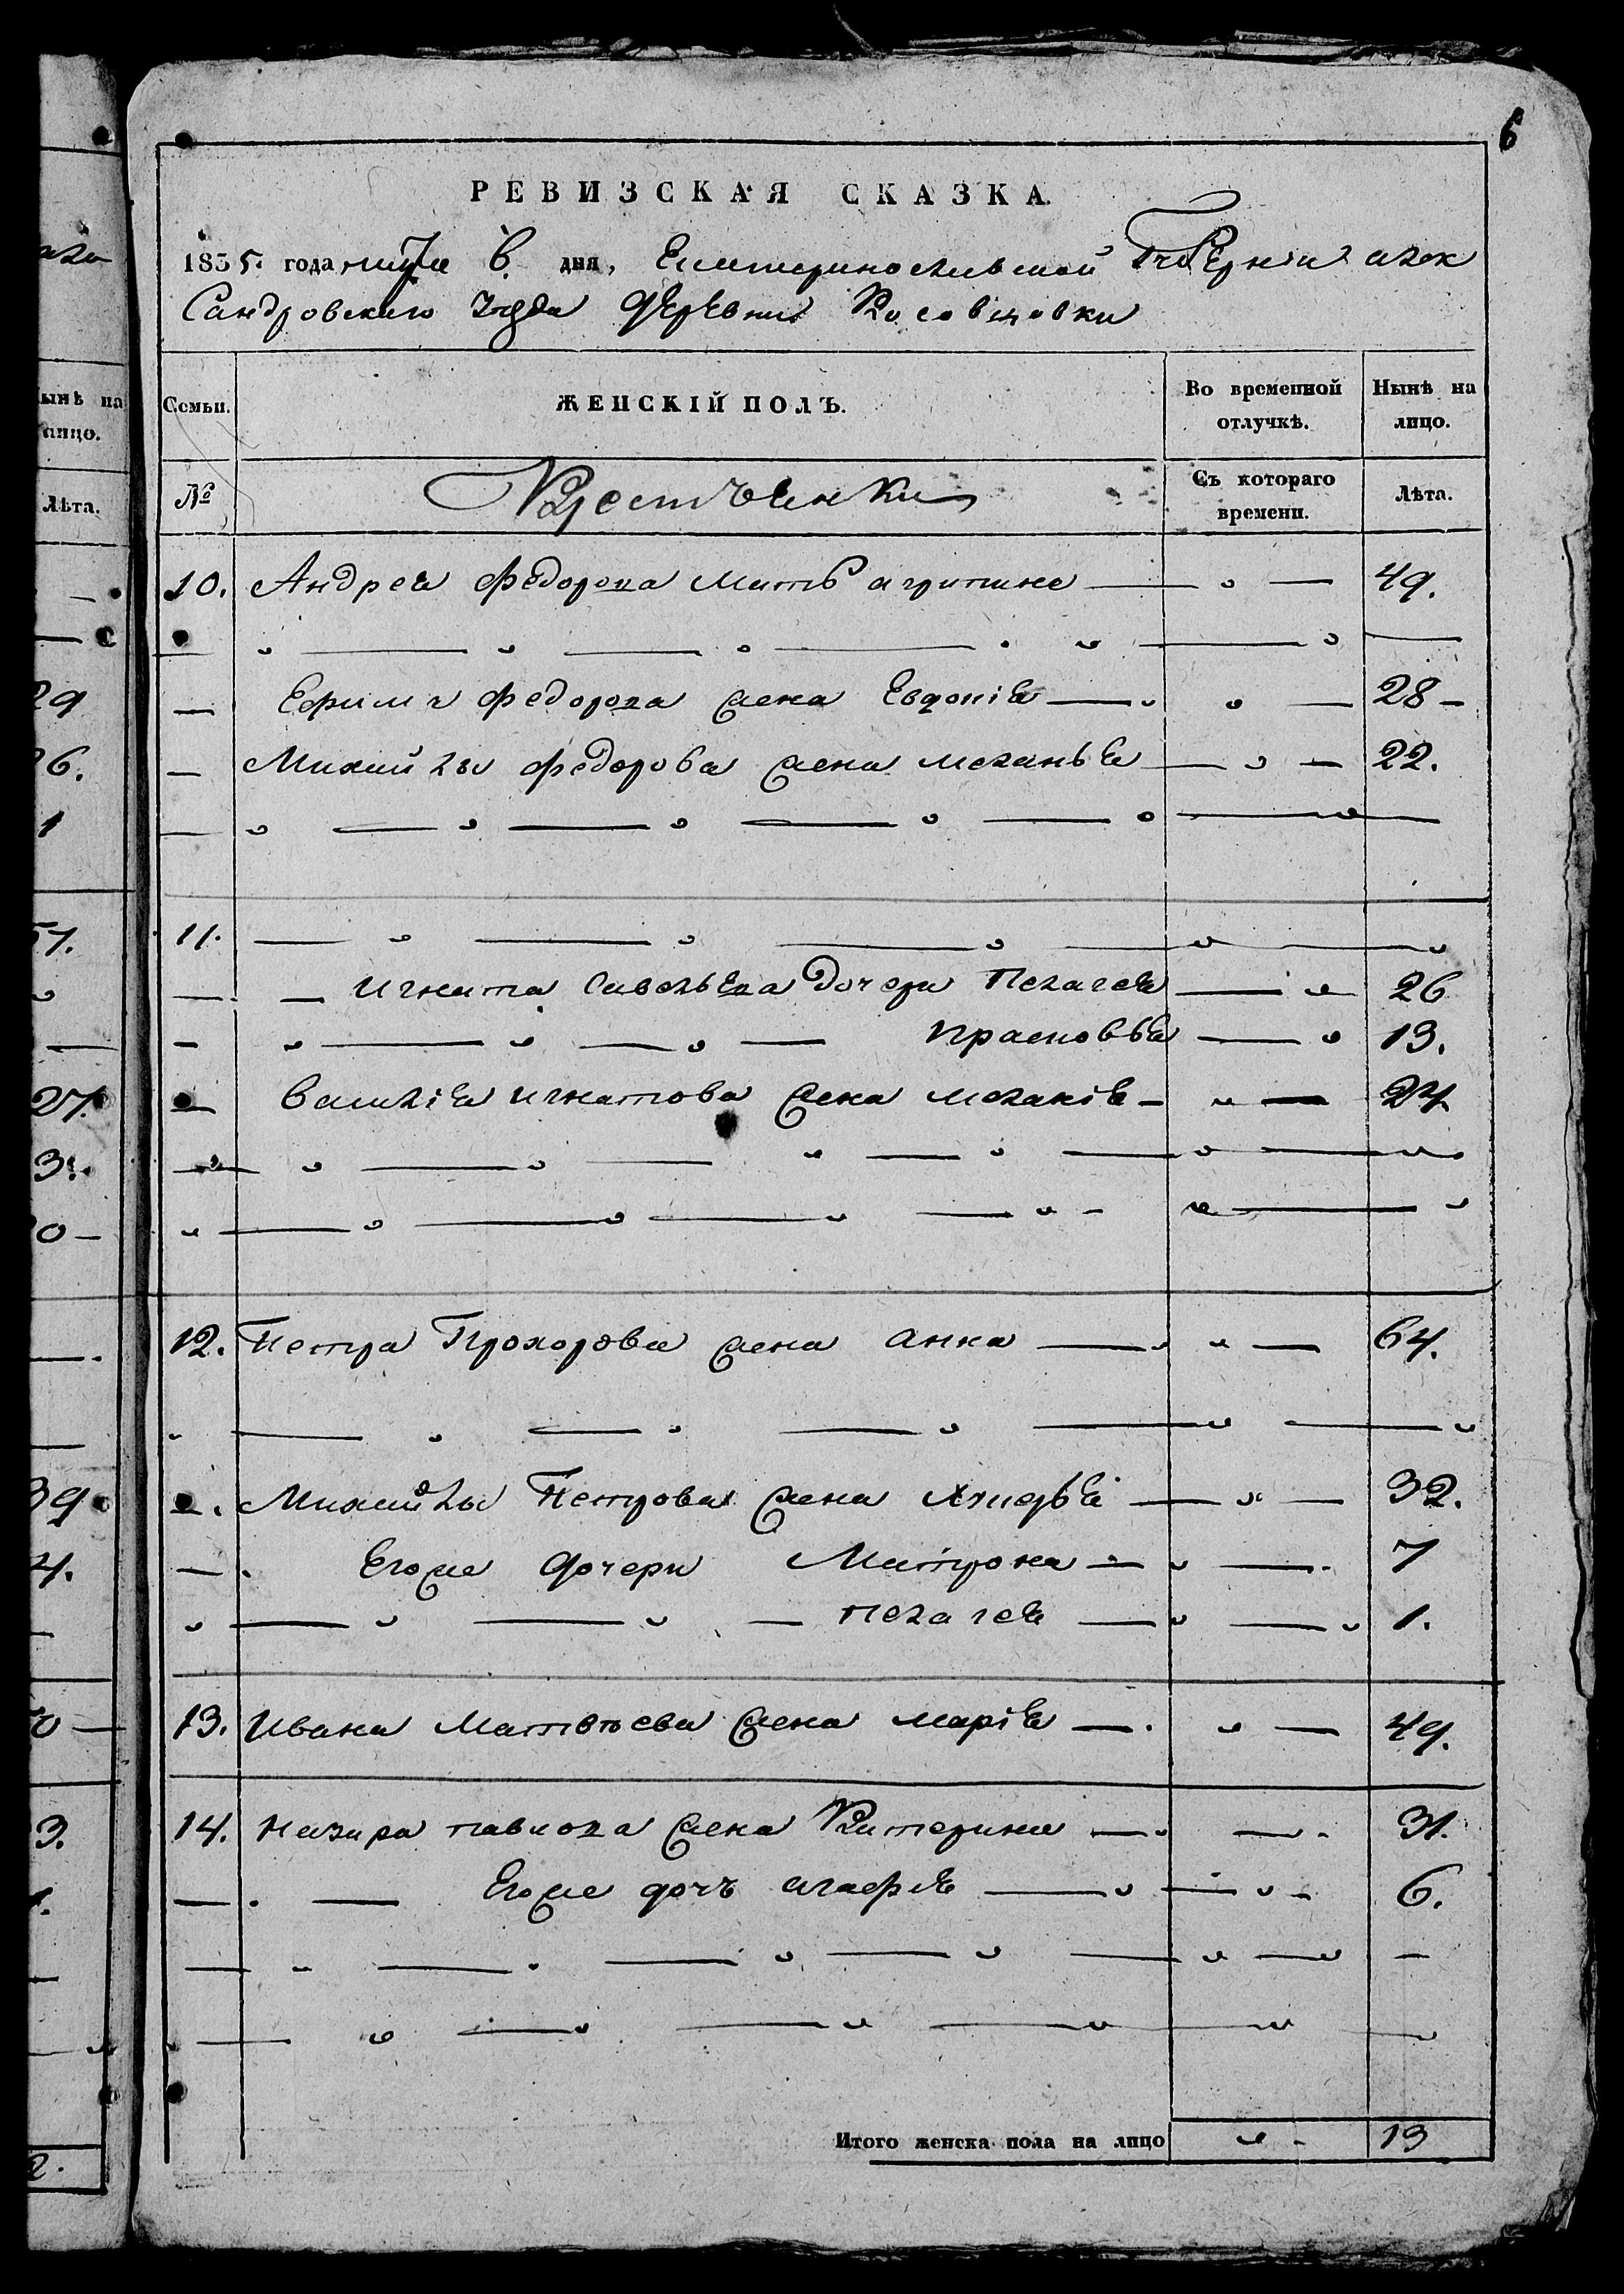 6
РЕВИЗСКАЯ СКАЗКА.
1835. года маія 6. дня, Екатеринославской Губерніи алек
Сандровскаго уезда деревни Косовцовки
Семьи. ЖЕНСКІЙ ПОЛЪ. Во временной отлучкѣ. Нынѣ на лицо.
№ Крестьянки Съ котораго времени. Лѣта.
10. Андрея Федорова мать агрипина — 49.
— Ефима Федорова жена Евдокія — 28 -
— Михайлы федорова жена меланья — 22.
11.
— Игната Савельева дочери Пелагея — 26
— Прасковья — 13.
— Василія игнатова жена меланія - 24
12. Петра Прохорова жена анна — 64.
Михайлы Петрова жена 32.
— Егоже дочери Матрона — 7
— пелагея — 1.
13. Ивана Матвѣева жена марія — 49.
14. назара павлова жена Катерина — 31.
— Егоже дочь агафія — 6.
Итого женска пола на лицо 13
ынѣ на
лицо.
Лѣта.
29
26.
1
51.
27.
3.
0 -
39
4.
3.
1.
2.